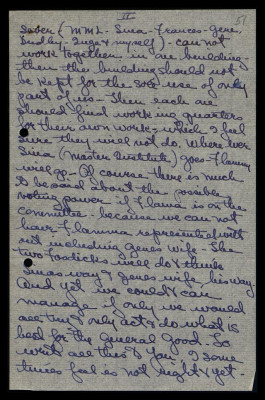 II
51
(MML - Sina - Frances - Gene,
Dudley - Inge & myself) - can not
work together in one building -
then the building should not
be kept for the sole use of only
part of us - Then each one
should find working quarters
for their own work, which I feel
sure they will not do. Where ever
Sina (Master Institute) goes - Flamma
will go - Of course there is much
to be said about the possible
voting power if Flamma is on the
committee - because we can not
have Flamma represented with
out including Genes wife - She
two Fosdicks will do & think
Sinas way & Genes wife, his way.
And yet we could & can
manage if only we would
all try & only act & do what is
best for the general good. So
with all this & you, I some
times feel is not right & yet -